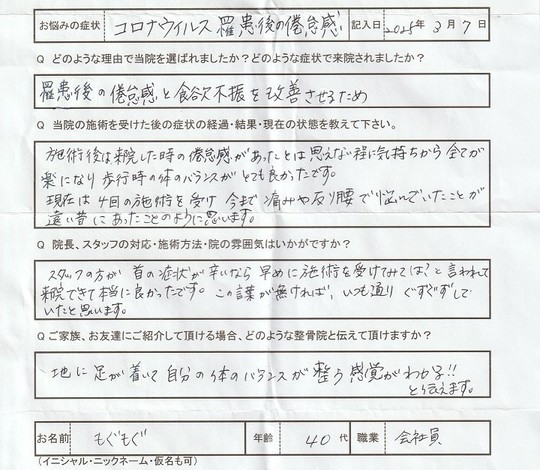 お悩みの症状 コロナウィルス罹患後の倦怠感 記入日 2025年 3月 7日
Q どのような理由で当院を選ばれましたか?どのような症状で来院されましたか?
罹患後の倦怠感と食欲不振を改善させるため
Q 当院の施術を受けた後の症状の経過・結果・現在の状態を教えて下さい。
施術後は来院した時の倦怠感があったとは思えない程に気持ちから全てが
楽になり歩行時の体のバランスがとても良かったです。
現在は4回の施術を受け今まで痛みや反り腰で悩んでいたことが
遠い昔にあったことのように思います。
Q 院長、スタッフの対応・施術方法・院の雰囲気はいかがですか?
スタッフの方が首の症状が辛いなら早めに施術を受けてみては?と言われて
来院できて本当に良かったです。この言葉が無ければ、いつも通りぐずぐずして
いたと思います。
Qご家族、お友達にご紹介して頂ける場合、どのような整骨院と伝えて頂けますか?
地に足が着いて自分の体のバランスが整う感覚がわかる!!
と伝えます。
お名前 もぐもぐ 年齢 40代 職業 会社員
(イニシャル・ニックネーム・仮名も可)